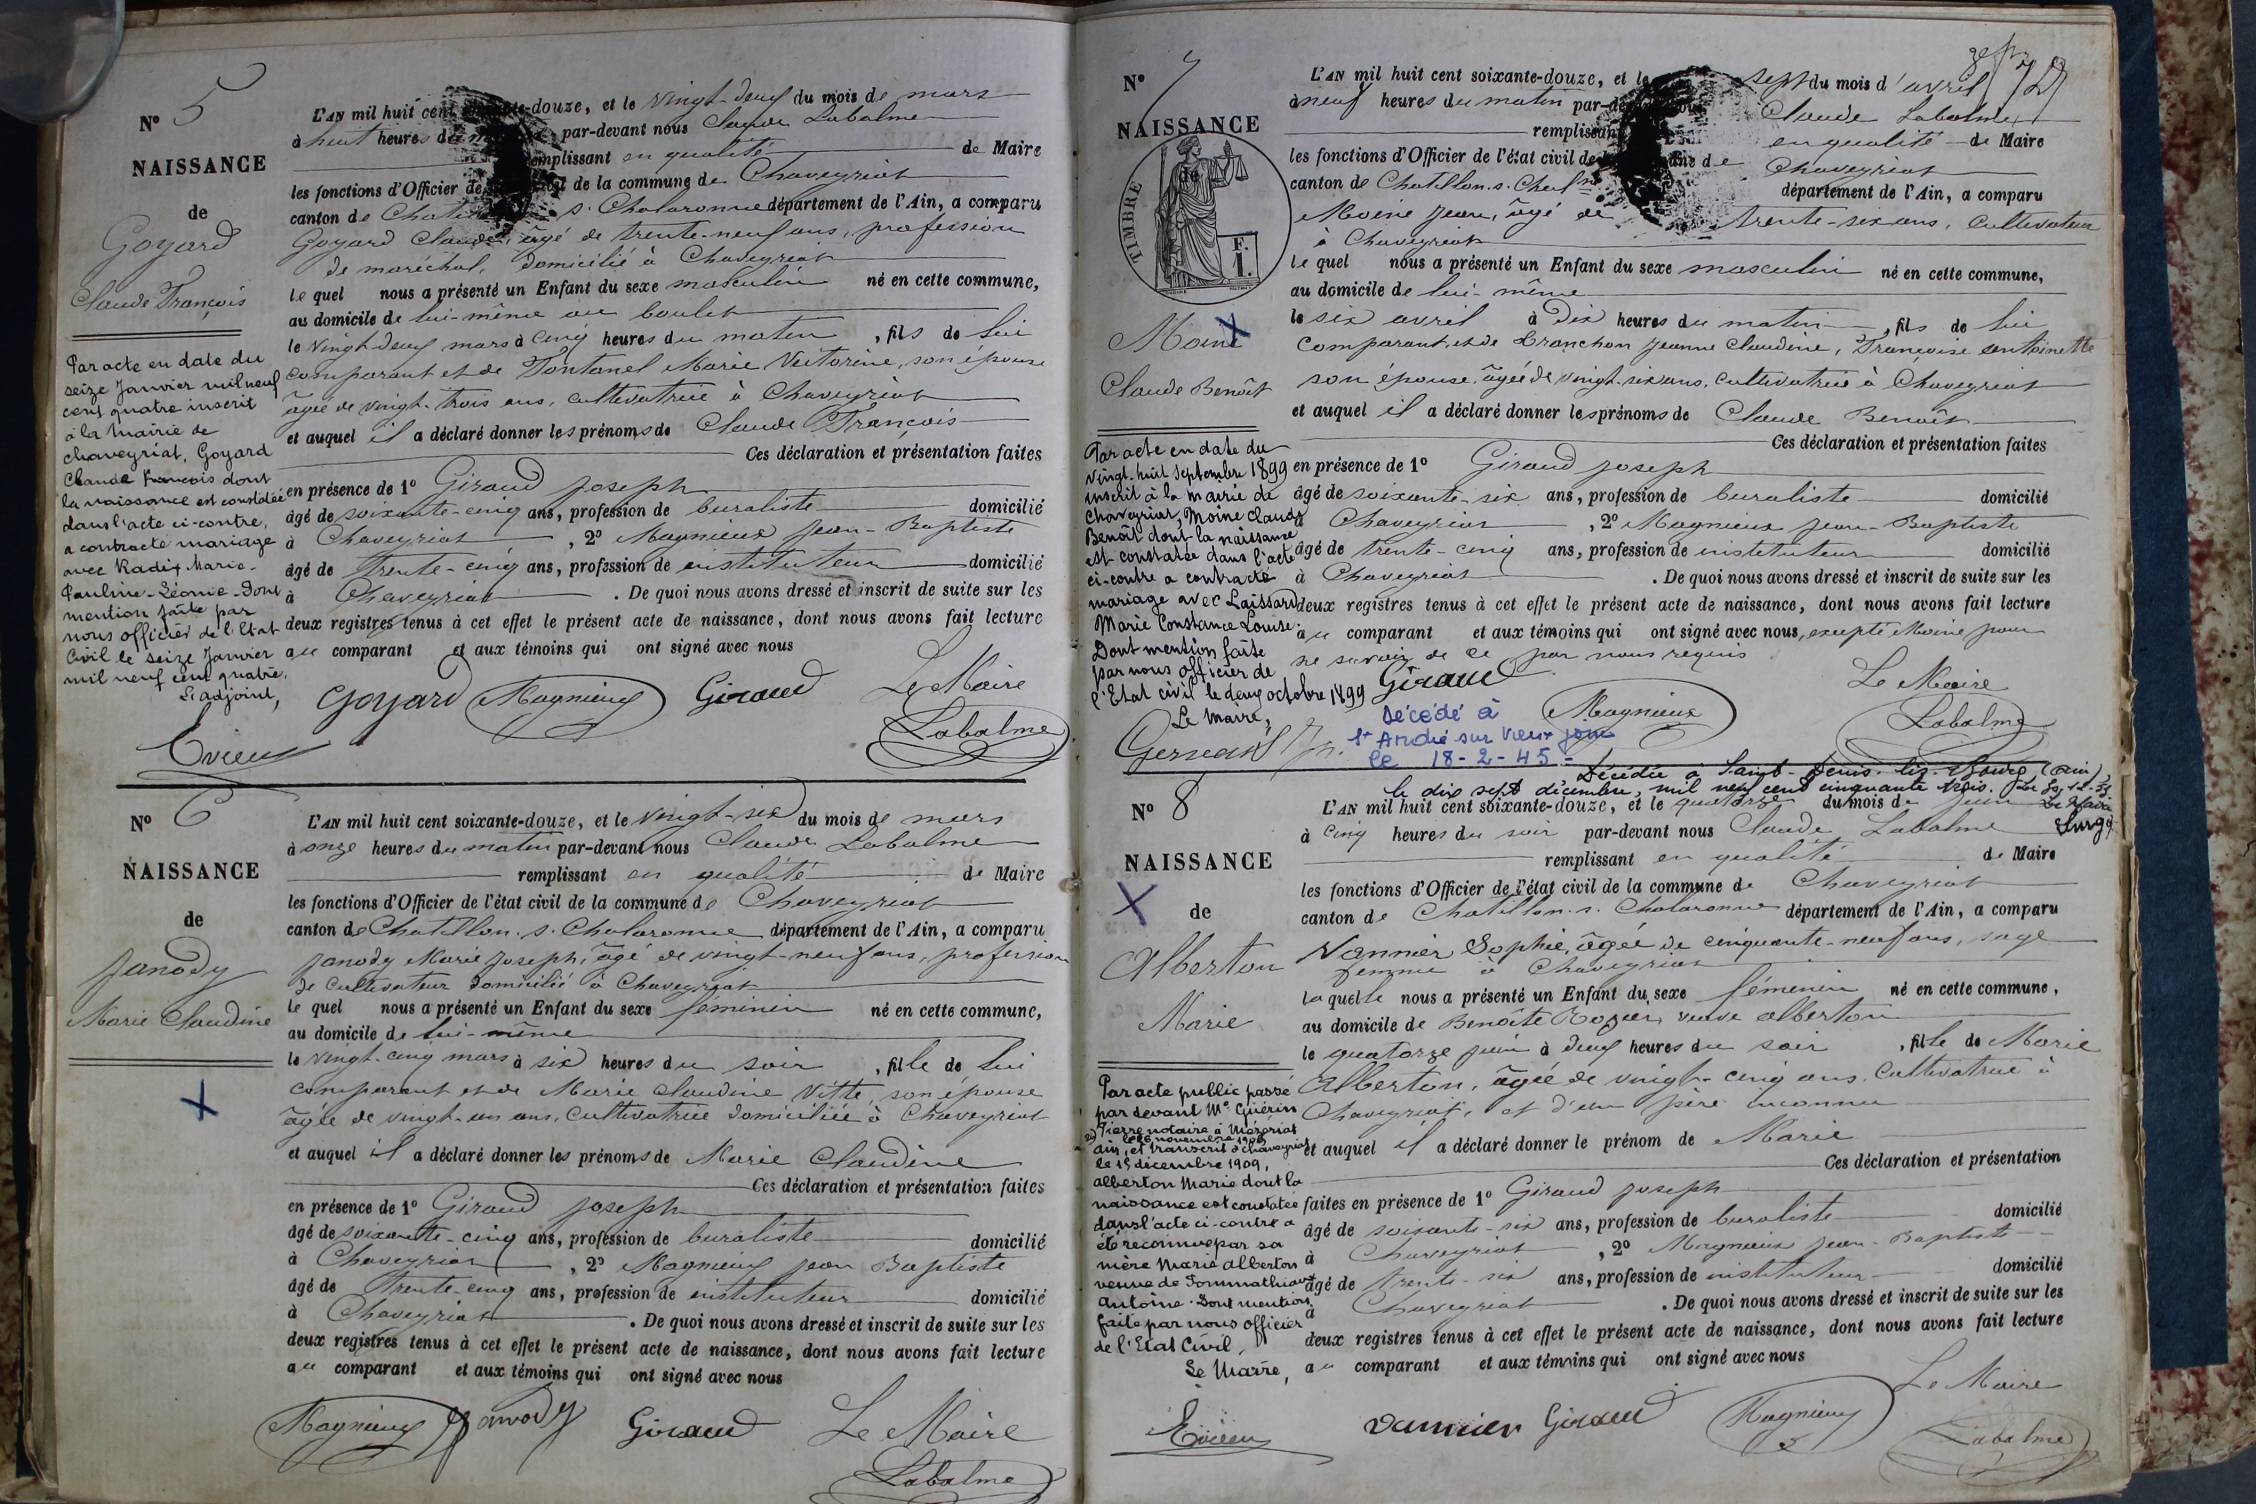 N° 5
NAISSANCE
de
Goyard
Claude François
L'AN mil huit cent soixante-douze, et le vingt-deux du mois de mars
à huit heures du matin par-devant nous Claude Labalme
remplissant en qualité de Maire
les fonctions d'Officier de l'état civil de la commune de Chaveyriat
canton de Chatillon s. Chalaronne département de l'Ain, a comparu
Goyard Claude, âgé de trente-neuf ans, profession
de maréchal, domicilié à Chaveyriat
lequel nous a présenté un Enfant du sexe masculin né en cette commune,
au domicile de lui-même au boulet
le vingt-deux mars à cinq heures du matin, fils de lui
comparant et de Fontanel Marie Victorine, son épouse
âgée de vingt-trois ans, cultivatrice à Chaveyriat
et auquel il a déclaré donner les prénoms de Claude François
Ces déclaration et présentation faites
en présence de 1° Giraud Joseph
âgé de soixante-cinq ans, profession de buraliste domicilié
à Chaveyriat, 2° Magnieux Jean-Baptiste
âgé de trente-cinq ans, profession de instituteur domicilié
à Chaveyriat. De quoi nous avons dressé et inscrit de suite sur les
deux registres tenus à cet effet le présent acte de naissance, dont nous avons fait lecture
au comparant et aux témoins qui ont signé avec nous
Par acte en date du
seize Janvier mil neuf
cent quatre inscrit
à la Mairie de
Chaveyriat, Goyard
Claude François dont
la naissance est constatée
dans l'acte ci-contre,
a contracté mariage
avec Radix Marie-
Pauline-Léonie-Dont
mention faite par
nous officier de l'Etat
Civil le seize Janvier
mil neuf cent quatre.
L'adjoint,
Evieux
Goyard Magnieux Giraud Le Maire
Labalme
N° 6
NAISSANCE
de
Janody
Marie Claudine
L'AN mil huit cent soixante-douze, et le vingt-six du mois de mars
à onze heures du matin par-devant nous Claude Labalme
remplissant en qualité de Maire
les fonctions d'Officier de l'état civil de la commune de Chaveyriat
canton de Chatillon s. Chalaronne département de l'Ain, a comparu
Janody Marie Joseph, âgé de vingt-neuf ans, profession
de cultivateur domicilié à Chaveyriat
lequel nous a présenté un Enfant du sexe féminin né en cette commune,
au domicile de lui-même
le vingt-cinq mars à six heures du soir, fille de lui
comparant et de Marie Claudine Vitte, son épouse
âgée de vingt-un ans, cultivatrice domiciliée à Chaveyriat
et auquel il a déclaré donner les prénoms de Marie Claudine
Ces déclaration et présentation faites
en présence de 1° Giraud Joseph
âgé de soixante-cinq ans, profession de buraliste domicilié
à Chaveyriat, 2° Magnieux Jean Baptiste
âgé de trente-cinq ans, profession de instituteur domicilié
à Chaveyriat. De quoi nous avons dressé et inscrit de suite sur les
deux registres tenus à cet effet le présent acte de naissance, dont nous avons fait lecture
au comparant et aux témoins qui ont signé avec nous
Magnieux Janody Giraud Le Maire
Labalme
N° 7
NAISSANCE
de
TIMBRE
F.
1.
Moine
Claude Benoît
L'AN mil huit cent soixante-douze, et le sept du mois d'avril
à neuf heures du matin par-devant nous Claude Labalme
remplissant en qualité de Maire
les fonctions d'Officier de l'état civil de la commune de Chaveyriat
canton de Chatillon s. Chal ne département de l'Ain, a comparu
Moine Jean, âgé de trente-six ans, cultivateur
à Chaveyriat
lequel nous a présenté un Enfant du sexe masculin né en cette commune,
au domicile de lui-même
le six avril à dix heures du matin, fils de lui
comparant, et de Tranchon Jeanne Claudine, Françoise Antoinette
son épouse, âgée de vingt-six ans, cultivatrice à Chaveyriat
et auquel il a déclaré donner les prénoms de Claude Benoît
Ces déclaration et présentation faites
en présence de 1° Giraud Joseph
âgé de soixante-six ans, profession de buraliste domicilié
à Chaveyriat, 2° Magnieux Jean-Baptiste
âgé de trente-cinq ans, profession de instituteur domicilié
à Chaveyriat. De quoi nous avons dressé et inscrit de suite sur les
deux registres tenus à cet effet le présent acte de naissance, dont nous avons fait lecture
au comparant et aux témoins qui ont signé avec nous, excepté Moine pour
ne savoir de ce par nous requis
Par acte en date du
vingt-huit septembre 1899
inscrit à la mairie de
Chaveyriat, Moine Claude
Benoît dont la naissance
est constatée dans l'acte
ci-contre a contracté
mariage avec Laissard
Marie Constance Louise.
Dont mention faite
par nous officier de
l'Etat civil le deux octobre 1899
Le Maire,
Giraud Magnieux Le Maire
Labalme
Décédé à
St André sur Vieux Jonc
le 18-2-45-
Décédée à Saint-Denis-lès-Bourg (Ain),
le dix sept décembre, mil neuf cent cinquante trois.
N° 8
NAISSANCE
de
Alberton
Marie
L'AN mil huit cent soixante-douze, et le quatorze du mois de juin
à cinq heures du soir par-devant nous Claude Labalme
remplissant en qualité de Maire
les fonctions d'Officier de l'état civil de la commune de Chaveyriat
canton de Chatillon s. Chalaronne département de l'Ain, a comparu
Vannier Sophie, âgée de cinquante-neuf ans, sage
femme à Chaveyriat
laquelle nous a présenté un Enfant du sexe féminin né en cette commune,
au domicile de Benoîte Rozier, veuve Alberton
le quatorze juin à deux heures du soir, fille de Marie
Alberton, âgée de vingt-cinq ans, cultivatrice à
Chaveyriat, et d'un père inconnu
et auquel il a déclaré donner le prénom de Marie
Ces déclaration et présentation
faites en présence de 1° Giraud Joseph
âgé de soixante-six ans, profession de buraliste domicilié
à Chaveyriat, 2° Magnieux Jean-Baptiste
âgé de trente-six ans, profession de instituteur domicilié
à Chaveyriat. De quoi nous avons dressé et inscrit de suite sur les
deux registres tenus à cet effet le présent acte de naissance, dont nous avons fait lecture
au comparant et aux témoins qui ont signé avec nous
Par acte public passé
par devant Me Guérin
Pierre notaire à Mézériat
le 26 novembre 1909
ain, et transcrit à Chaveyriat
le 15 décembre 1909,
Alberton Marie dont la
naissance est constatée
dans l'acte ci-contre a
été reconnue par sa
mère Marie Alberton
veuve de Pommathiau
Antoine. Dont mention
faite par nous officier
de l'Etat Civil,
Le Maire,
Evieux
Vannier Giraud Magnieux Le Maire
Labalme